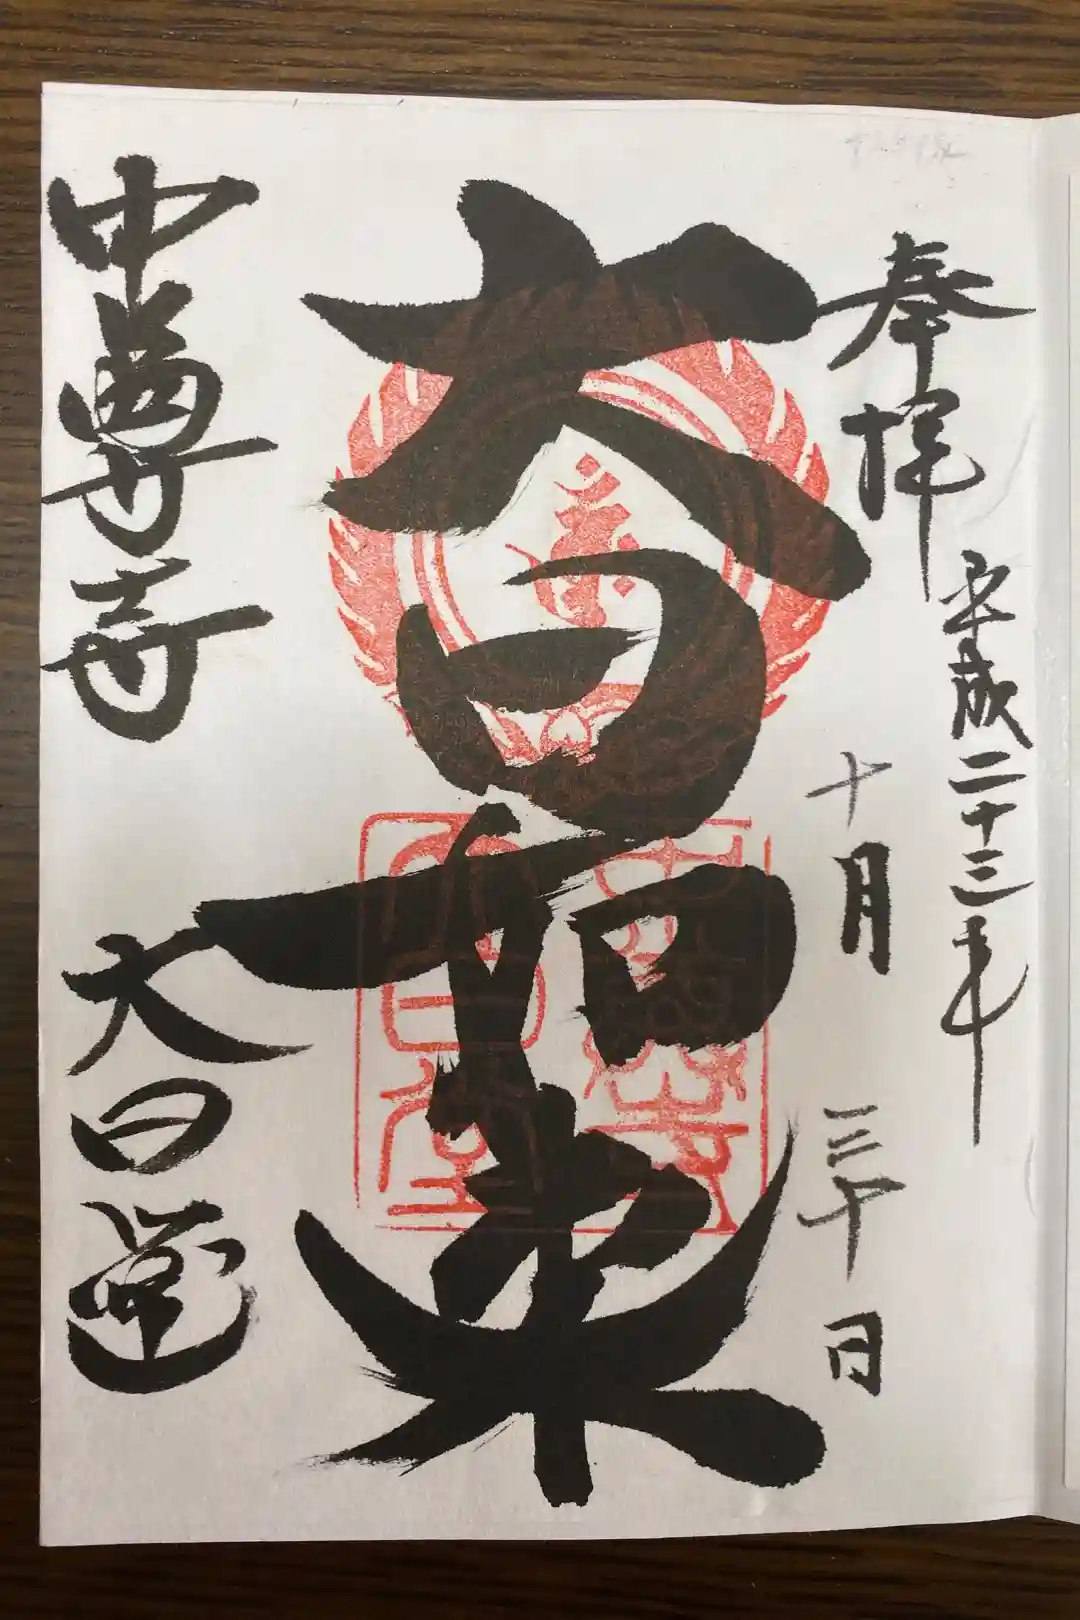 奉拝
平成二十三年
十月三十日
大日如来
中尊寺 大日堂